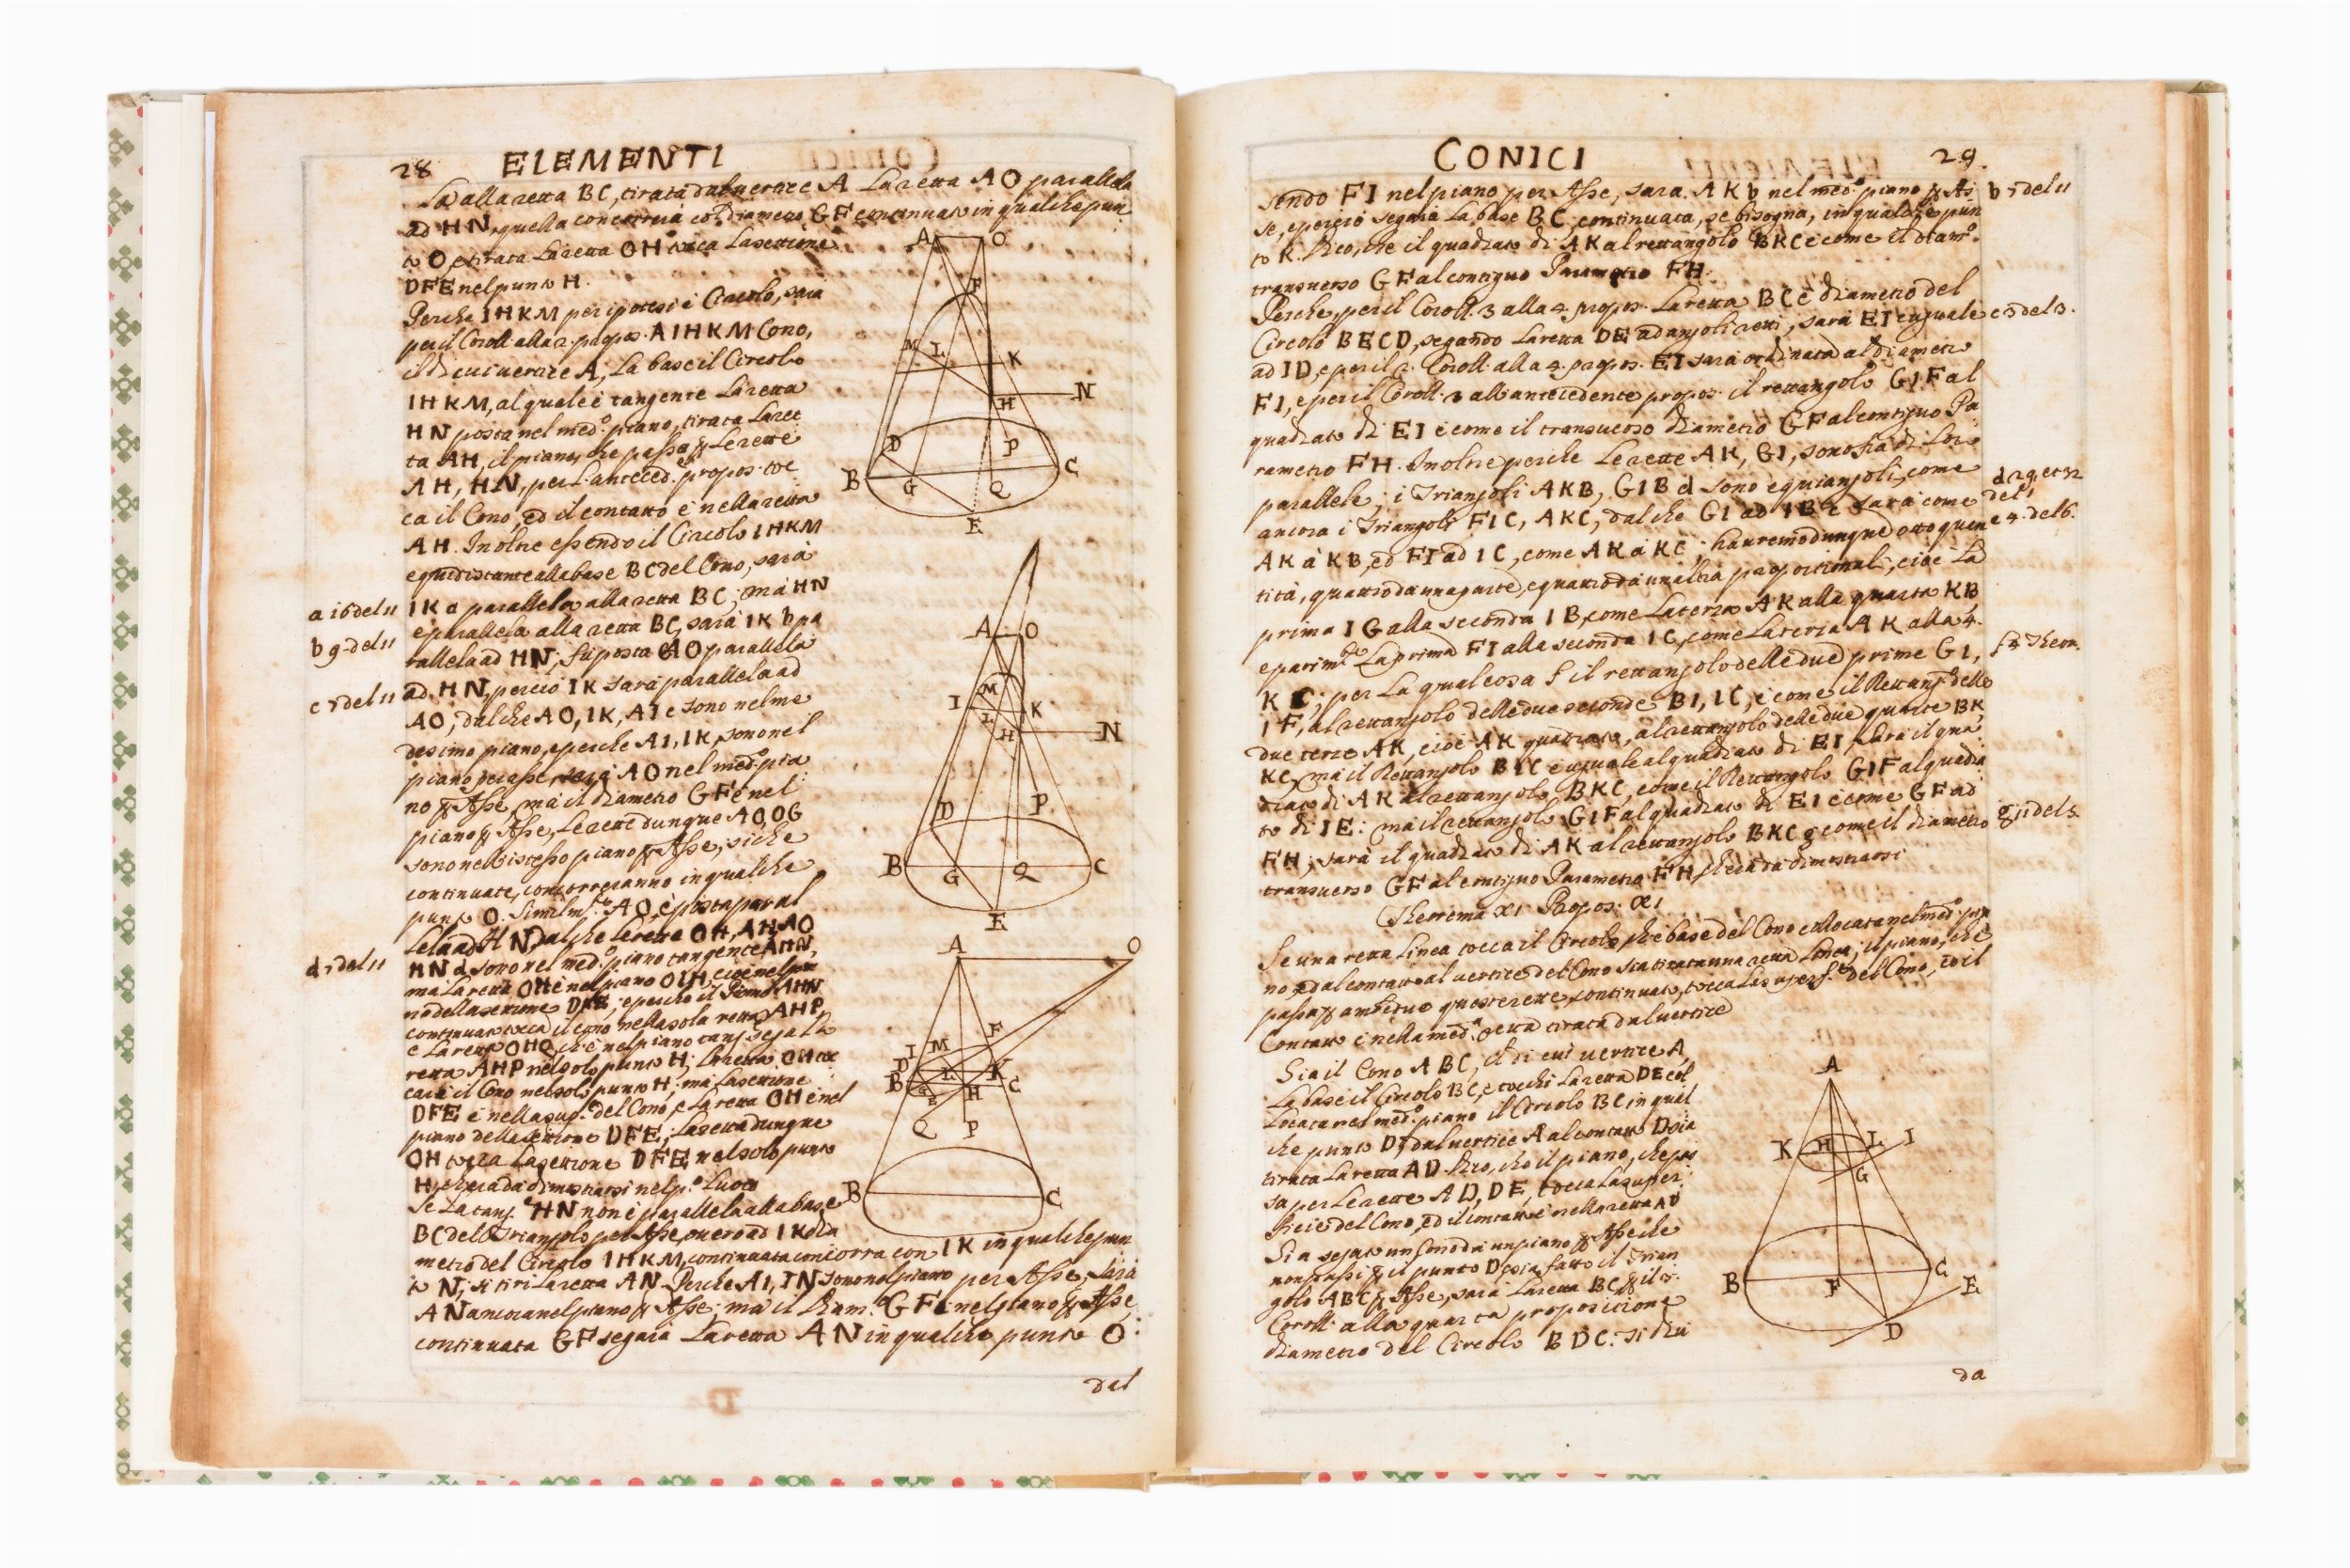 28 ELEMENTI
la alla retta BC, tirata dal vertice A La retta AO parallela
ad HN, quella concorrerà col diametro GF continuato in qualche pun
to O, e tirata La retta OH tocca La settione
DFE nel punto H.
Perche IHKM per ipotesi è Circolo, sarà
per il Coroll. alla 2. propos. AIHKM Cono,
il di cui vertice A, La base il Circolo
IHKM, al quale è tangente La retta
HN posta nel med.º piano, tirata La ret
ta AH, il piano, che passa p Le rette
AH, HN, per L'anteced.e propos. toc
ca il Cono, ed il contatto è nella retta
AH. Inoltre essendo il Circolo IHKM
equidistante alla base BC del Cono, sarà
a 16 del 11 IK a parallela alla retta BC; mà HN
è parallela alla retta BC, sarà IK b pa
b 9. del 11 rallela ad HN; fù posta AO parallela
c 7 del 11 ad HN, perciò IK sarà parallela ad
AO; dal che AO, IK, AI c sono nel me
desimo piano, e perche AI, IK, sono nel
piano per asse, sarà AO nel med.º pia
no p Asse, mà il diametro GF è nel
piano p Asse, Le rette dunque AO, OG
sono nel'istesso piano p Asse, si che
continuate, concorreranno in qualche
punto O. Simil m.te AO, è posta paral
lela ad HN, dal che Le rette OH, AH, AO
d 7 del 11 HN d sono nel med.º piano tangente AHN,
ma La retta OH è nel piano OIH, cioè nel pia
no della settione DFE, e perche il Piano AHN
continuato tocca il cono nella sola retta AHP,
e La retta OHQ, che è nel piano tang. sega La
retta AHP nel solo punto H; La retta OH toc
carà il Cono nel solo punto H; ma La settione
DFE è nella sup.e del Cono, e La retta OH è nel
piano della settione DFE, La retta dunque
OH tocca La settione DFE nel solo punto
H, che era da dimostrarsi nel p.º Luoco
Se La tang.e HN non è parallela alla base
BC del Triangolo per Asse, overo ad IK dia
metro del Circolo IHKM, continuata concorra con IK in qualche pun
to N; si tiri La retta AN. Perche AI, IN sono nel piano per Asse, sarà
AN ancora nel piano p Asse; mà il Diam.º GF è nel piano p Asse,
continuata GF segarà La retta AN in qualche punto O:
dal
A O
F
M L K
H N
D P
B G Q C
E
A O
M
I K
L
H N
D P
B G Q C
E
A O
F
I M
D L K
B G E H C
Q P
B C
CONICI 29.
sendo FI nel piano per Asse, sara. AK b nel med.º piano p As b 7 del 11
se, e perciò segarà La base BC, continuata, se bisogna, in qualche pun
to K. Dico, che il quadrato di AK al rettangolo BKC è come il diam.º
transverso GF al contiguo Parametro FH.
Perche, per il Coroll. 3 alla 4. propos. La retta BC è diametro del
Circolo BECD, segando La retta DE ad angoli retti, sarà EI c uguale c 3 del 3.
ad ID, e per il 2. Coroll. alla 4. propos. EI sarà ordinata al diametro
FI, e per il Coroll. 3 all'antecedente propos. il rettangolo GIF al
quadrato di EI è come il transverso diametro GF al contiguo Pa
rametro FH. Inoltre perche Le rette AK, GI, sono fra di Loro
parallele; i Triangoli AKB, GIB d sono equiangoli, come d 29. et 32 del 1
ancora i Triangoli FIC, AKC, dal che GI ad IB e sarà come e 4. del 6.
AK à KB, ed FI ad IC, come AK à KC; hauremo dunque otto quan
tità, quattro da una parte, e quattro da un'altra proportionali, cioè La
prima IG alla seconda IB, come La terza AK alla quarta KB
e parim.te La prima FI alla seconda IC, come La terza AK alla 4.
KC; per La qual cosa f il rettangolo delle due prime GI, f 4 Theor.
IF, al rettangolo delle due seconde BI, IC, è come il Rettang.º delle
due terze AK, cioè AK quadrato, al rettangolo delle due quarte BK,
KC, mà il Rettangolo BIC è uguale al quadrato di EI, sarà il qua
drato di AK al rettangolo BKC, come il Rettangolo GIF al quadra
to di IE: mà il rettangolo GIF al quadrato di EI è come GF ad
FH; sarà il quadrato di AK al rettangolo BKC g come il diametro g 11 del 5.
transverso GF al contiguo Parametro FH, che era da dimostrarsi
Theorema XI Propos. XI
Se una retta Linea tocca il Circolo, che è base del Cono collocata nel med.º pia
no, e dal contatto al vertice del Cono sia tirata una retta Linea; il piano, che
passa p ambedue queste rette, continuato, tocca La superf.e del Cono, ed il
Contatto è nella med.a retta tirata dal vertice
Sia il Cono ABC, il di cui vertice A,
La base il Circolo BC, e tocchi La retta DE col
Locata nel med.º piano il Circolo BC in qual
che punto D; dal vertice A al contatto D sia
tirata La retta AD. Dico, che il piano, che pas
sa per Le rette AD, DE, tocca La super
ficie del Cono, ed il contatto è nella retta AD
Sia segato un Cono da un piano p Asse che
non passi p il punto D, e sia fatto il Trian
golo ABC p Asse, sarà La retta BC p il 3.
Coroll. alla quarta propositione
diametro del Circolo BDC. Si divi
da
A
K H L I
G
B F C
E
D